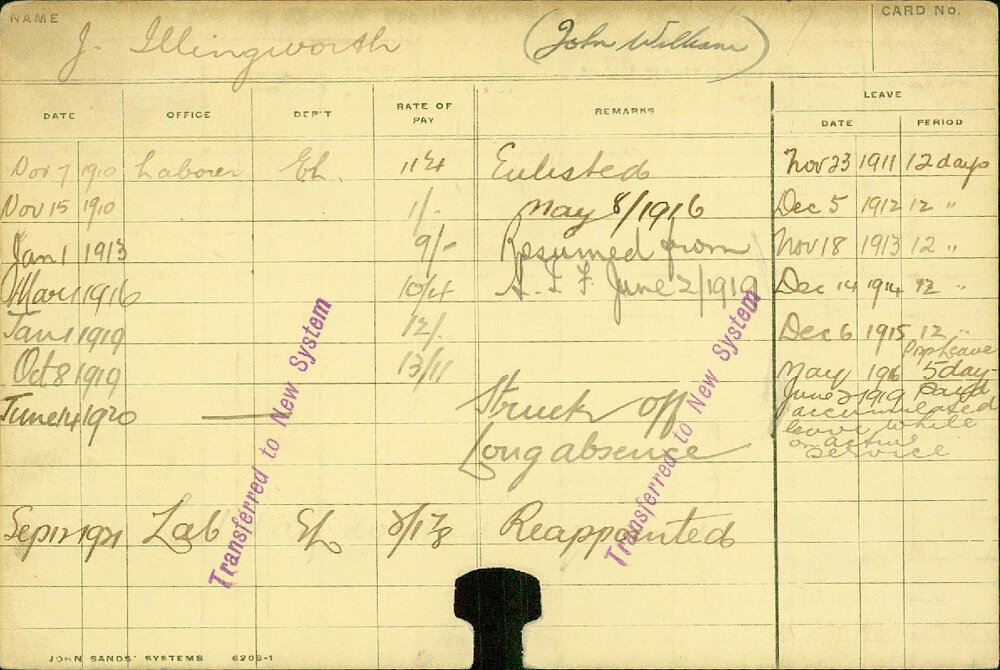 NAME
CARD No.
J. Illingworth (John William)
LEAVE
DATE OFFICE DEP'T RATE OF PAY REMARKS DATE PERIOD
Nov 7 1910 Laborer EL. Enlisted Nov 23 1911 12 days
Nov 15 1910 1/- May 8/1916 Dec 5 1912 12 "
Jan 1 1913 9/- Resumed from Nov 18 1913 12 "
Mar 1 1916 10/4 A.I.F. June 2/1919 Dec 14 1914 12 "
Jan 1 1919 12/- Dec 6 1915 12 "
Oct 8 1919 13/11 May 1916 5 day
June 14 1920 — Struck off June 2 1919 Paid
accumulated
leave while
on active
service
Long absence
Sep 12 1921 Lab EL Reappointed
Transferred to New System
Transferred to New System
JOHN SANDS' SYSTEMS 6206-1